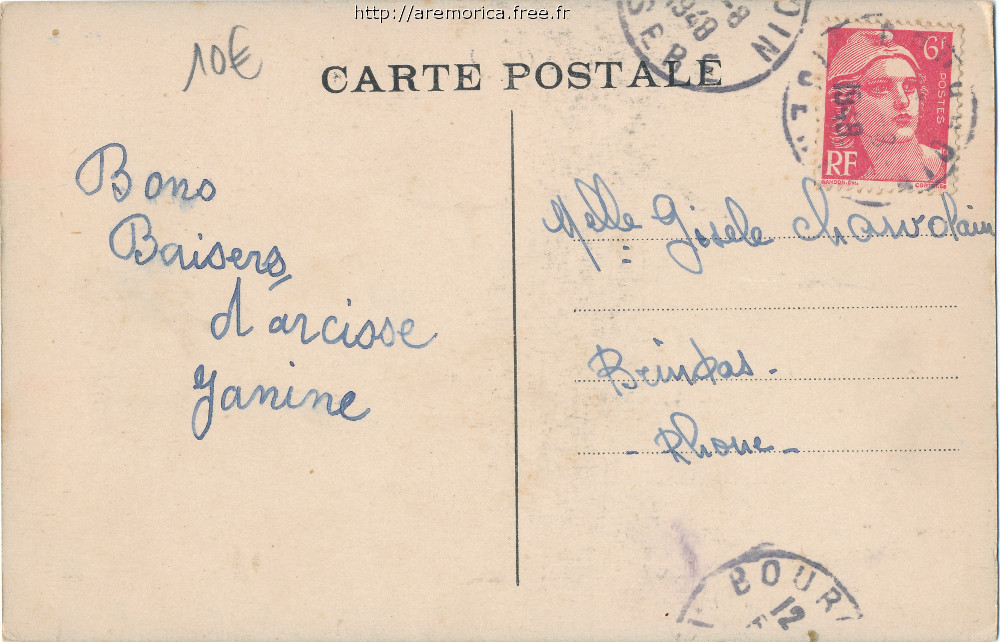 http://aremorica.free.fr
10€
CARTE POSTALE
1948
6F
POSTES
RF
Bons
Baisers
d'arcisse
Janine
Melle Gisèle Charvolain
Brindas -
- Rhone -
BOUR
12